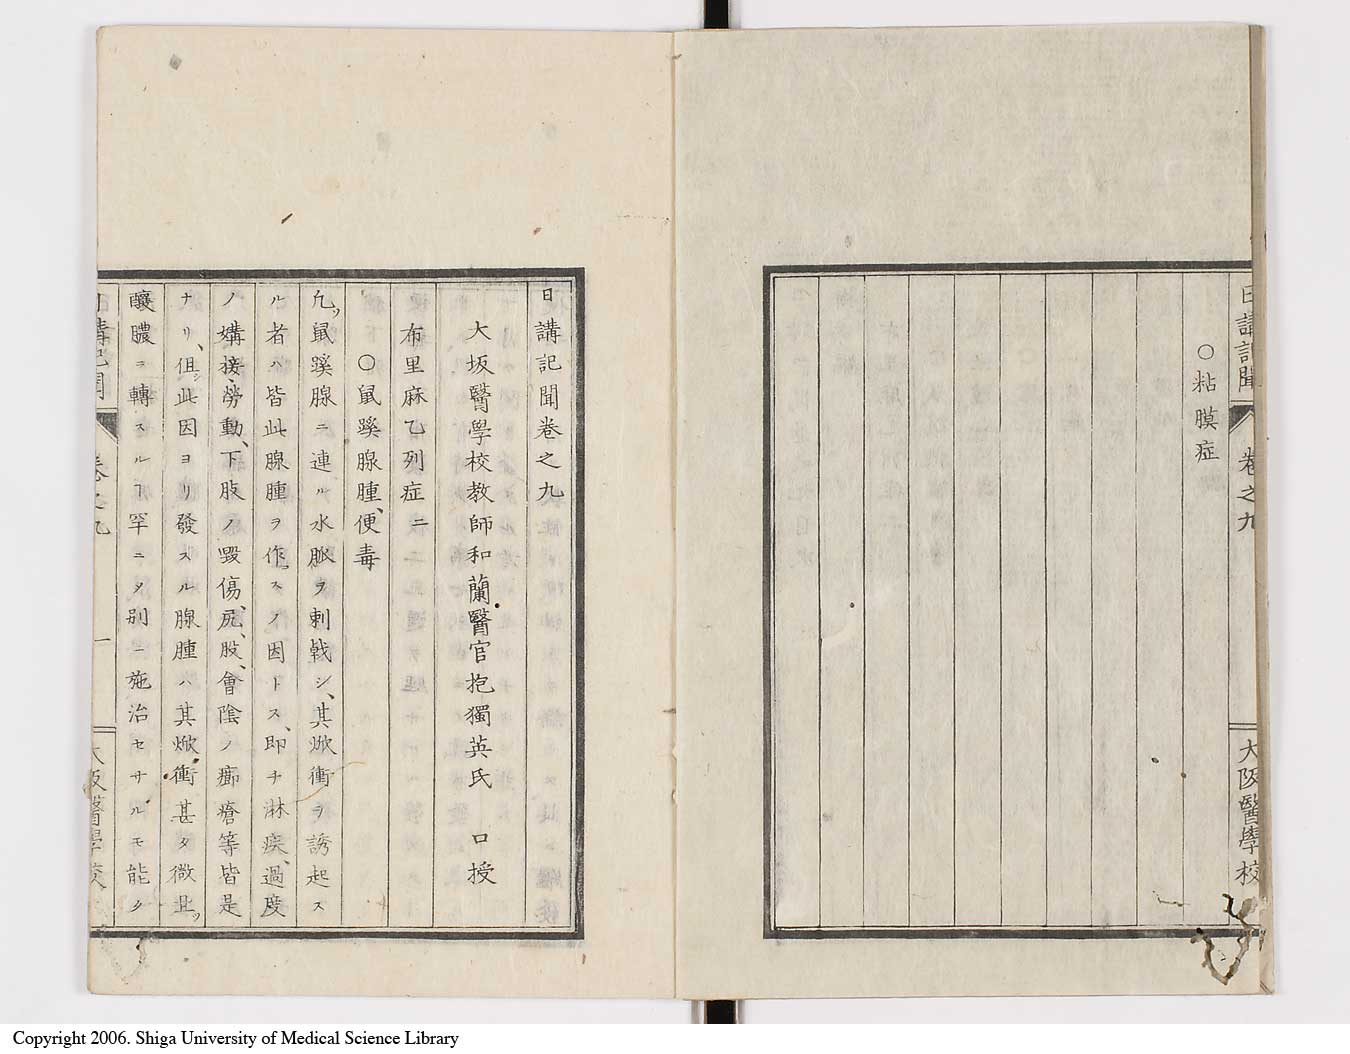 日講記聞
卷之九
大阪醫學校
○粘膜症
日講記聞卷之九
大坂醫學校教師和蘭醫官抱獨英氏 口授
布里麻乙列症ニ
○鼠蹊腺腫、便毒
凢ソ鼠蹊腺ニ、連ル水脈ヲ刺戟シ、其焮衝ヲ誘起ス
ル者ハ皆此腺腫ヲ作スノ因トス、即チ淋疾、過度
ノ媾接、勞動、下肢ノ毀傷、尻、股、會陰ノ癤瘡等皆是
ナリ、但シ此因ヨリ發スル腺腫ハ其焮衝甚タ微且ツ
釀膿ヲ轉スルヿ罕ニメ別ニ施治セサルモ能ク
日講記聞
卷之九
一
大阪醫學校